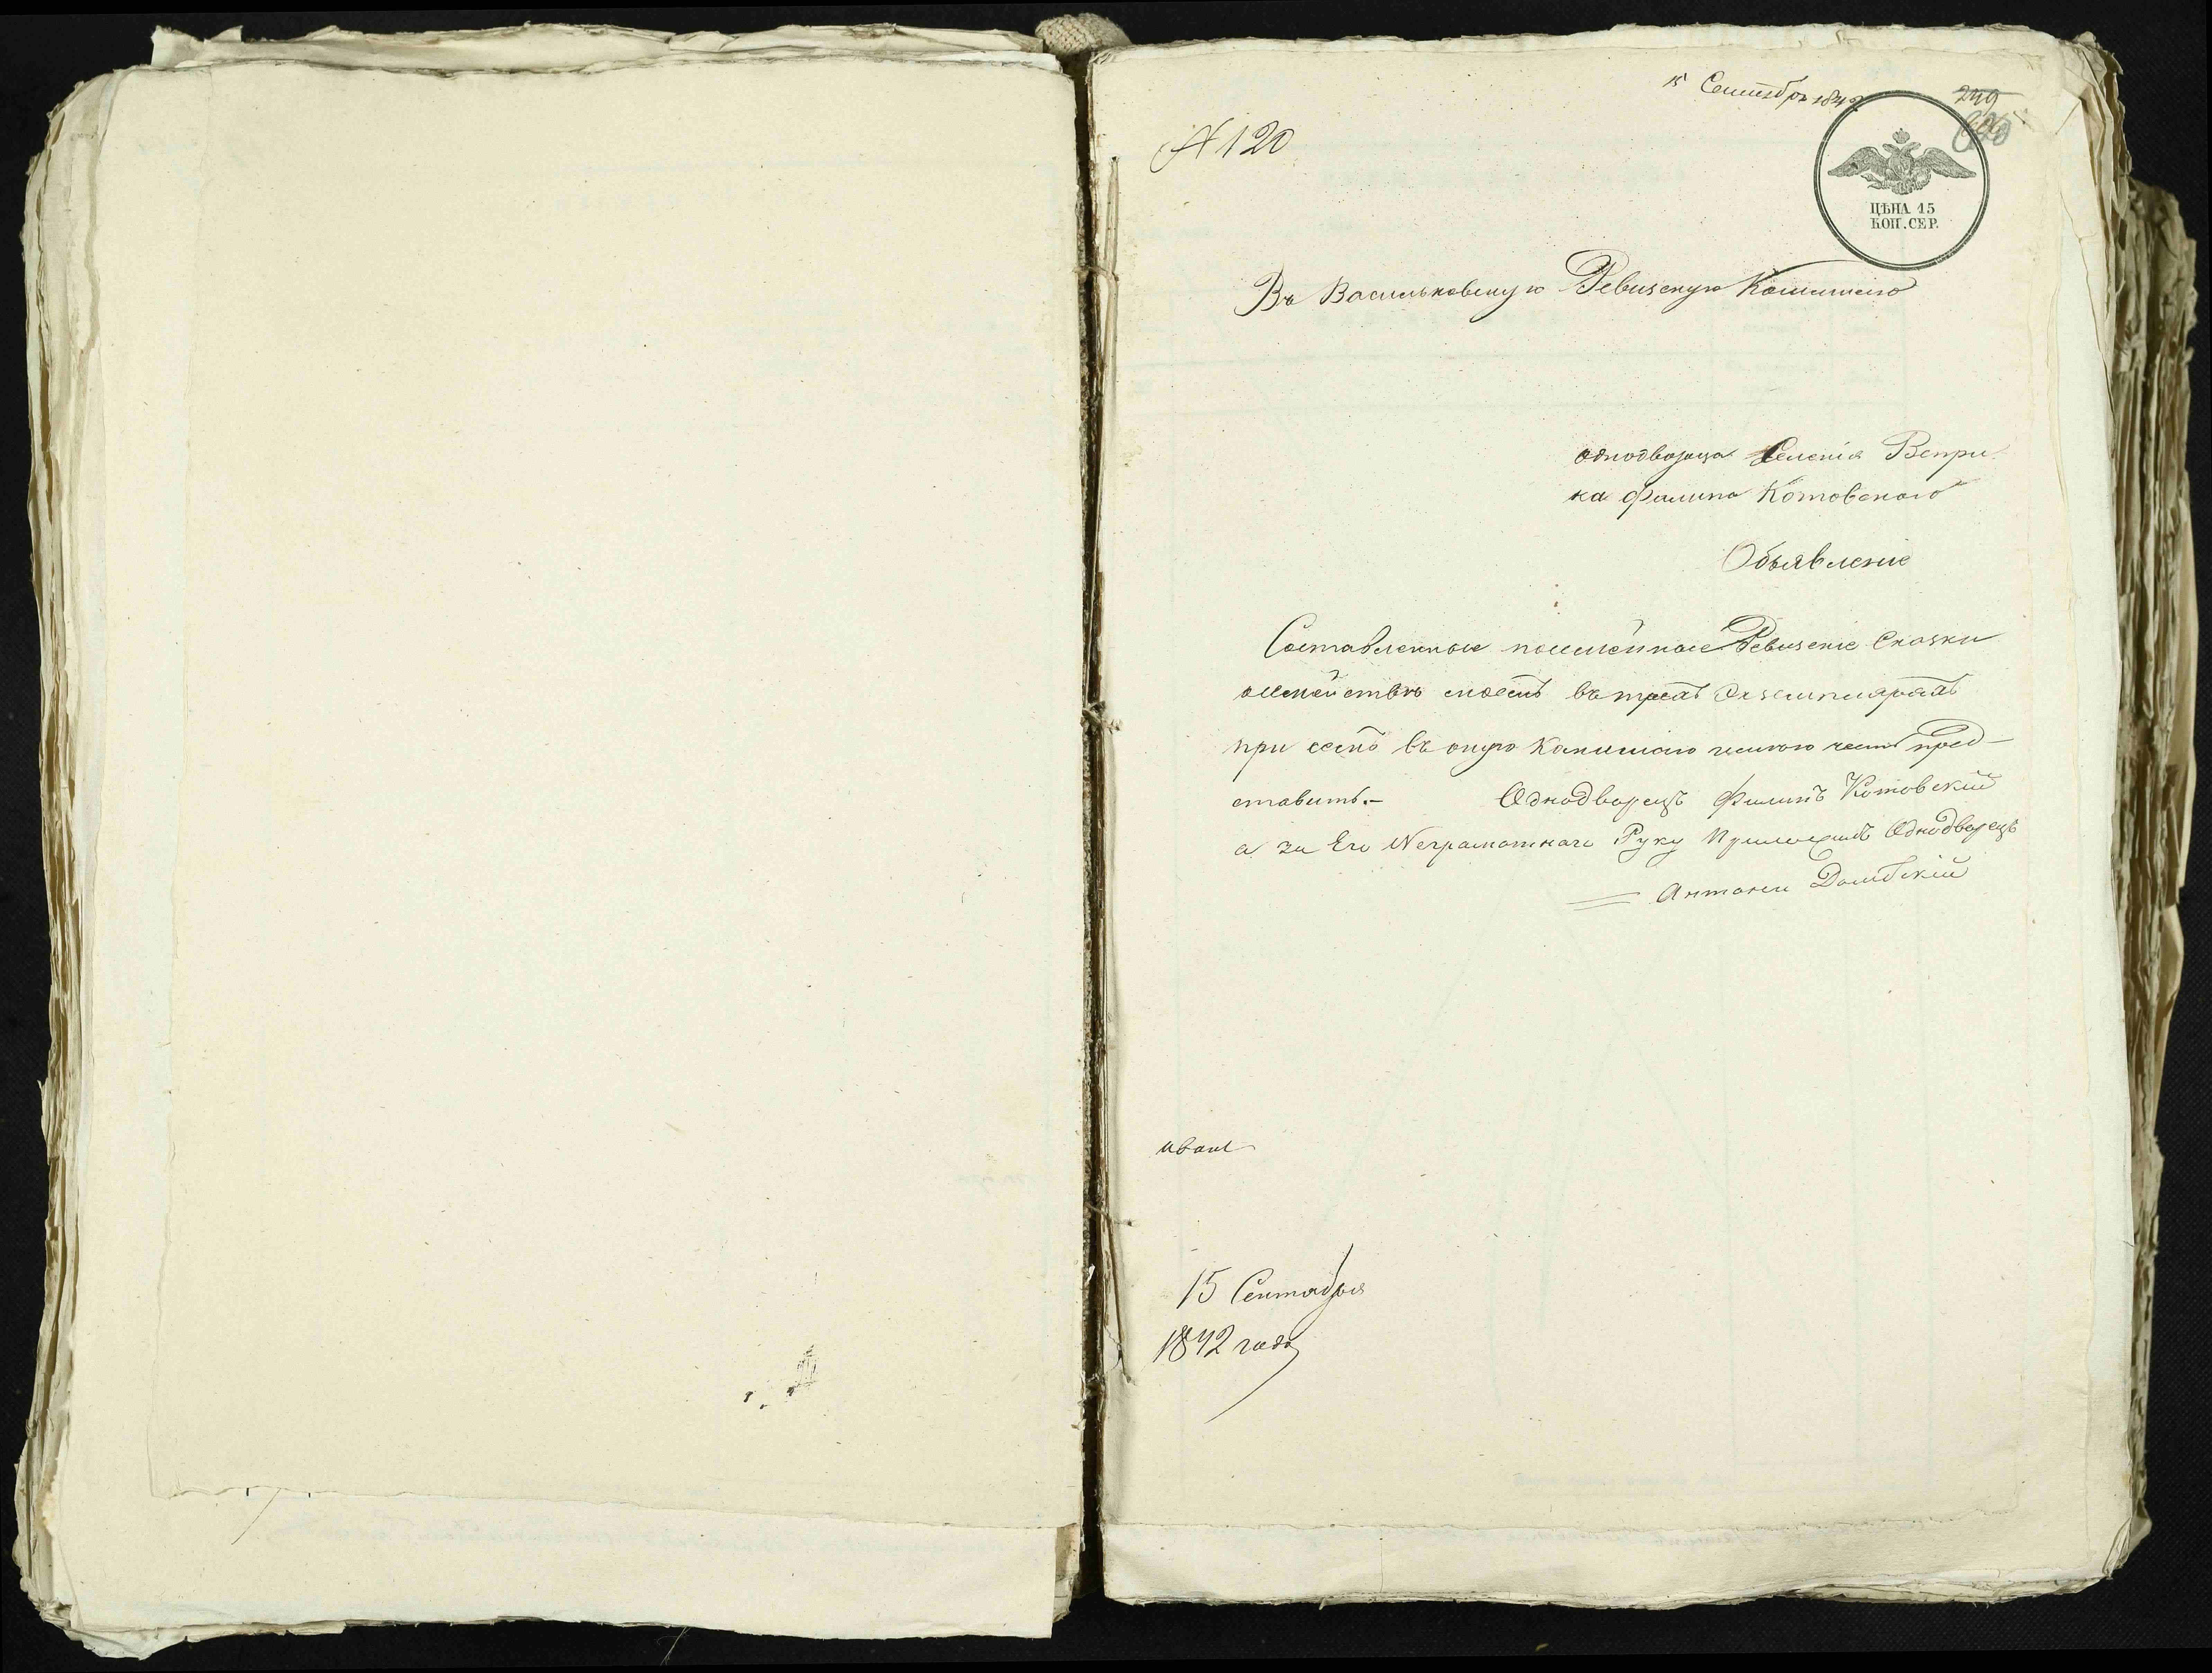 15 Сентября 1842
249
№ 120
ЦѢНА 15
КОП. СЕР.
Въ Васильковскую Ревизскую Комиссію
однодворца Селенія Веприка
ка Филипа Котовского
Объявленіе
Составленные поименные Ревизскіе Сказки
осемействѣ моемъ въ трехъ Экземплярахъ
при семъ въ оную Комиссию имѣю честь пред-
ставить.- Однодворецъ Филипъ Котовский
а за Его Неграмотнаго Руку Приложилъ Однодворецъ
Антони Домбскій
15 Сентября
1842 года